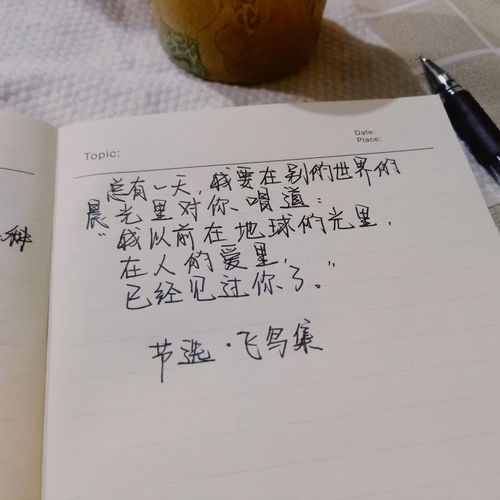 Date:
Place:
Topic:
总有一天,我要在别的世界的
晨光里对你唱道:
“我以前在地球的光里,
在人的爱里,
已经见过你了。”
节选·飞鸟集
种